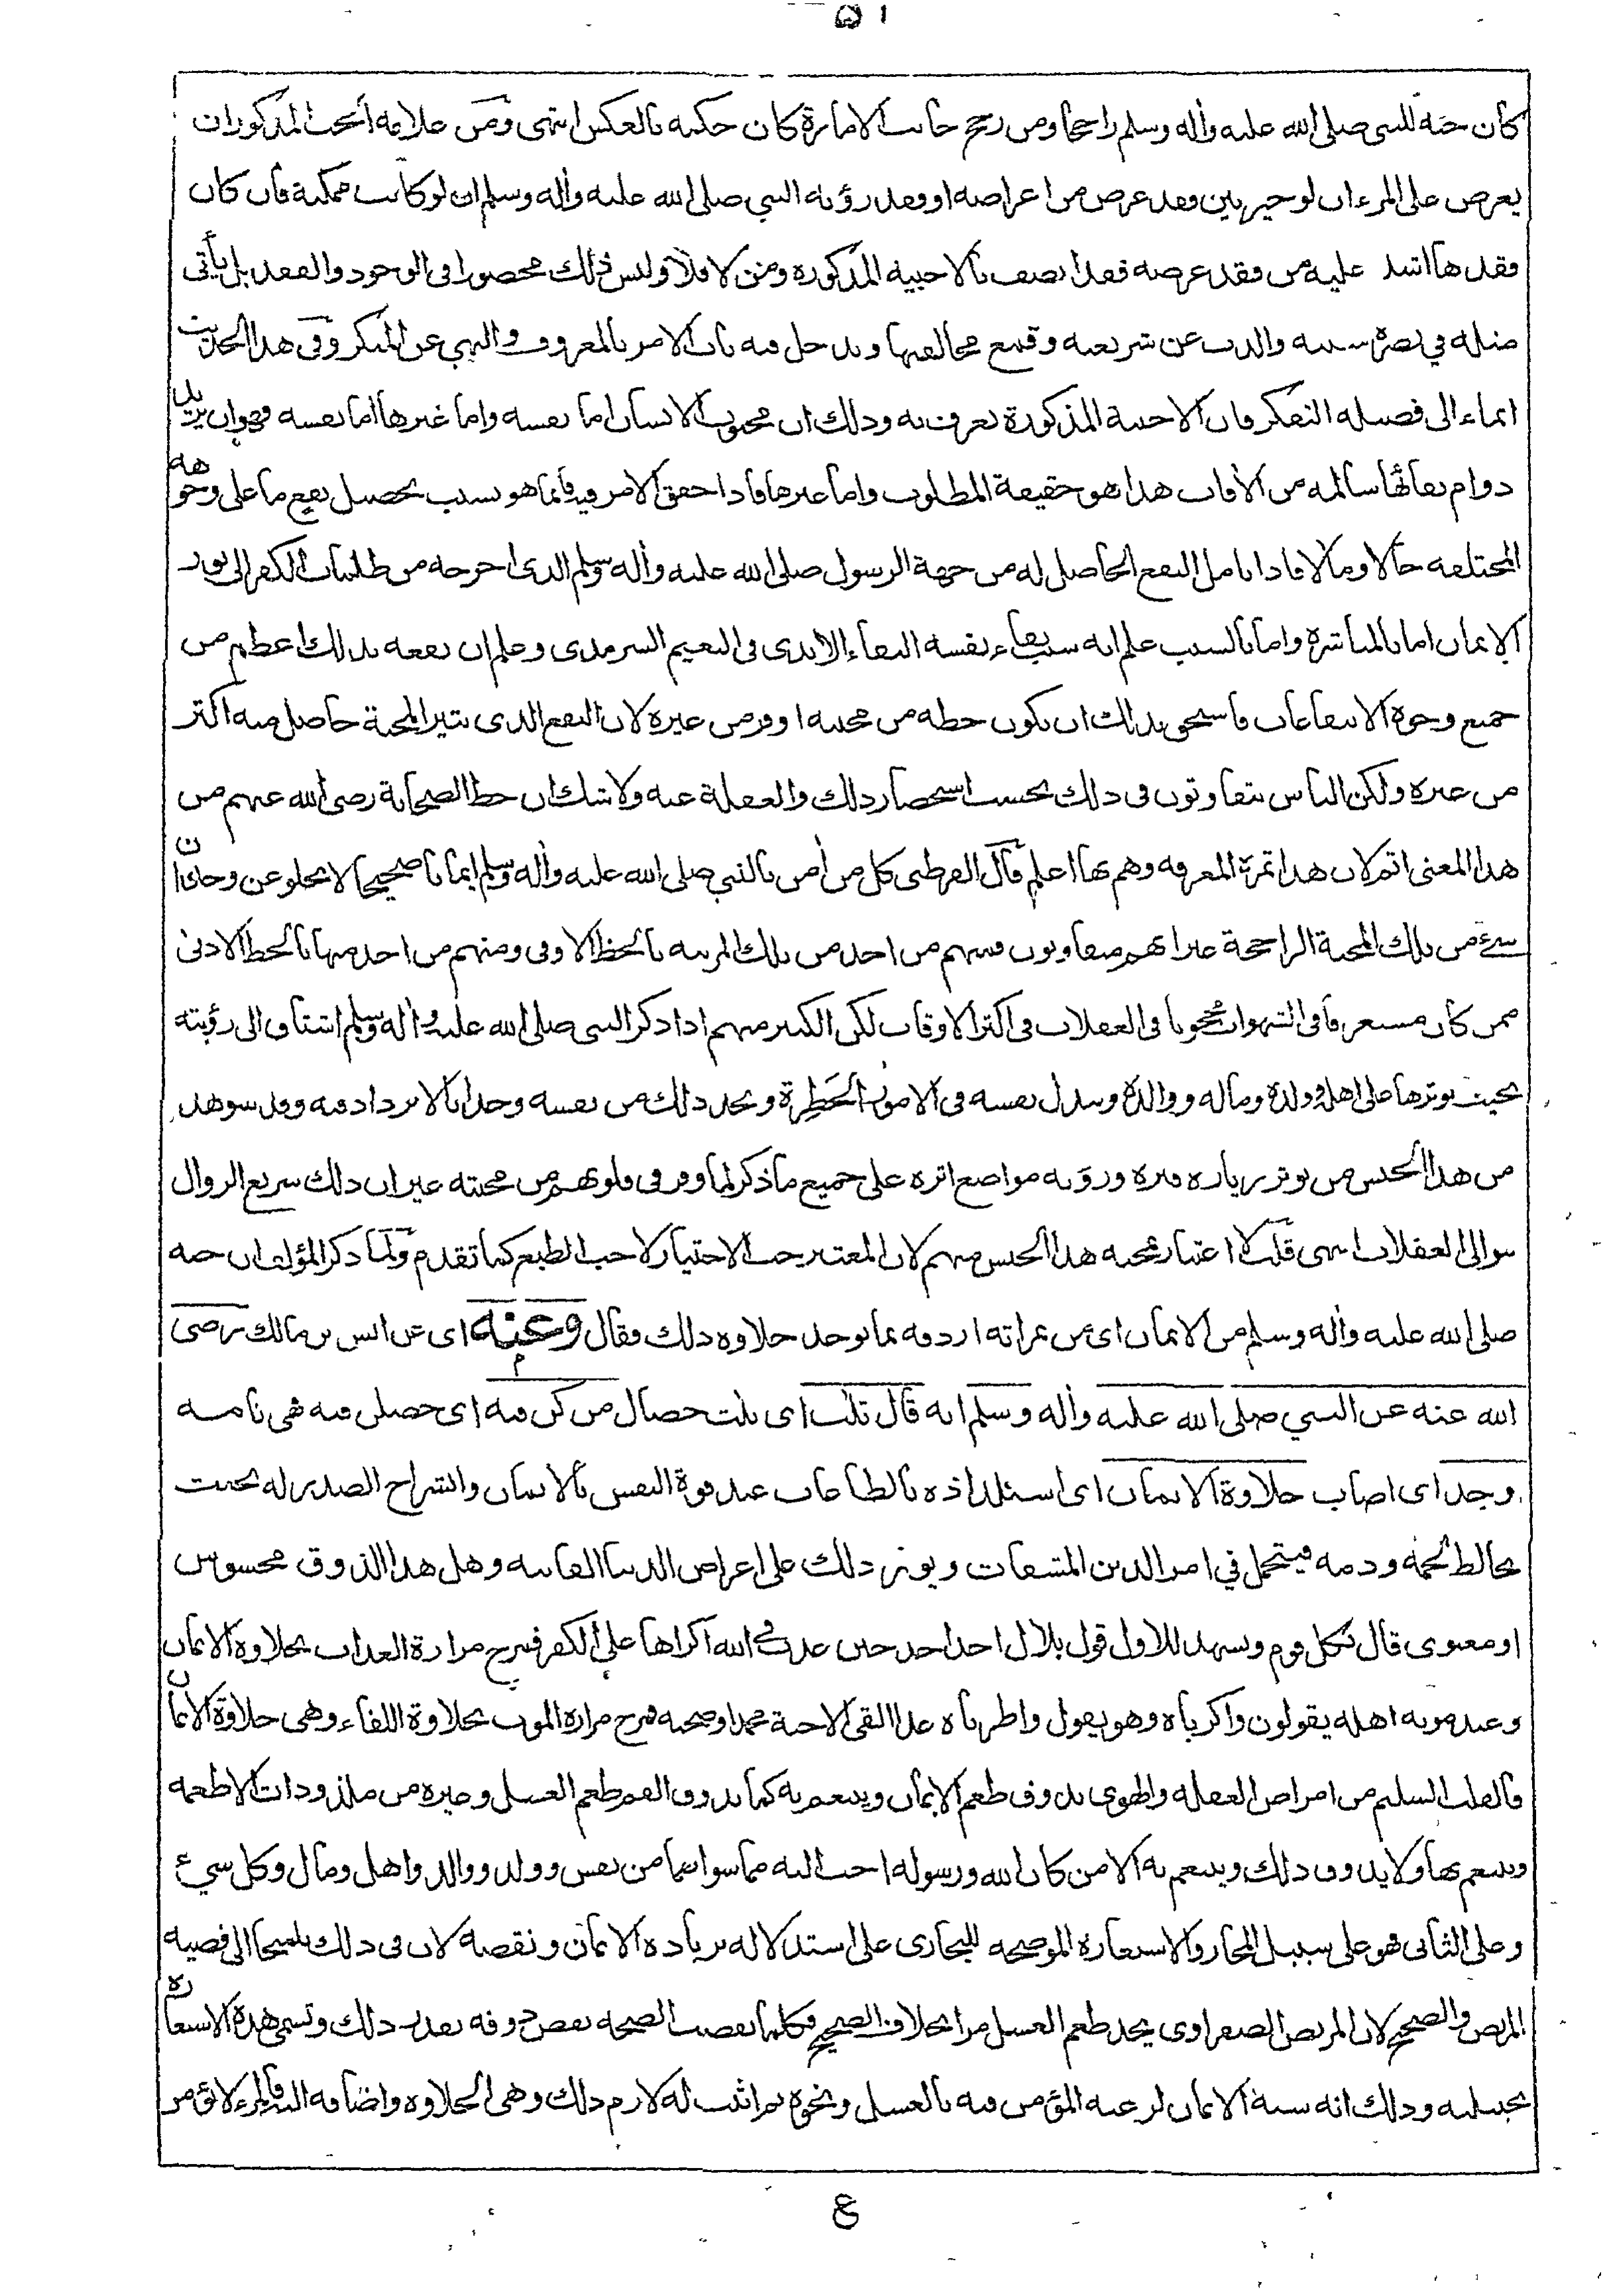 ٥١
كان حبه للنبي صلى الله عليه وأله وسلم راجحا ومن رجح جانب الامارة كان حكمه بالعكس انتهى ومن علامة الحب المذكور ان
يعرض على المرء ان لو خير بين فقد غرض من اغراضه او فقد رؤية النبي صلى الله عليه وأله وسلم ان لو كانت ممكنة فان كان
فقدها اشد عليه من فقد غرضه فقد اتصف بالاحبية المذكورة ومن لا فلا وليس ذلك محصورا في الوجود والفقد بل يأتي
مثله في نصرة سنته والذب عن شريعته وقمع مخالفيها ويدخل فيه باب الامر بالمعروف والنهي عن المنكر وفي هذا الحديث
ايماء الى فضيلة التفكر فان الاحبية المذكورة تعرف به وذلك ان محبوب الانسان اما نفسه واما غيرها اما نفسه فهو ان يريد
دوام بقائها سالمة من الأفات هذا هو حقيقة المطلوب واما غيرها فاذا حقق الامر فيه فأنما هو بسبب تحصيل نفع ما على وجوهه
المختلفة حالا ومالا فاذا تامل النفع الحاصل له من جهة الرسول صلى الله عليه وأله وسلم الذي اخرجه من ظلمات الكفر الى نور
الايمان اما بالمباشرة واما بالسبب علم انه سبب بقاء نفسه البقاء الابدي في النعيم السرمدي وعلم ان نفعه بذلك اعظم من
جميع وجوه الانتفاعات فاستحق بذلك ان يكون حظه من محبته اوفر من غيره لان النفع الذي يثير المحبة حاصل منه اكثر
من غيره ولكن الناس يتفاوتون في ذلك بحسب استحضار ذلك والغفلة عنه ولا شك ان حظ الصحابة رضي الله عنهم من
هذا المعنى اتم لان هذا ثمرة المعرفة وهم بها اعلم قال القرطبي كل من أمن بالنبي صلى الله عليه وأله وسلم ايمانا صحيحا لا يخلو عن وجدان
شيء من تلك المحبة الراجحة غير انهم متفاوتون فمنهم من اخذ من تلك المرتبة بالحظ الاوفى ومنهم من اخذ منها بالحظ الادنى
كمن كان مستغرقا في الشهوات محجوبا في الغفلات في اكثر الاوقات لكن الكثير منهم اذا ذكر النبي صلى الله عليه وأله وسلم اشتاق الى رؤيته
بحيث يوثرها على اهله وولده وماله ووالده ويبذل نفسه في الامور الخطيرة ويجد ذلك من نفسه وجدانا لا تردد فيه وقد شوهد
من هذا الجنس من يوثر زيارة قبره ورؤية مواضع اثره على جميع ما ذكر لما وقر في قلوبهم من محبته غير ان ذلك سريع الزوال
بتوالي الغفلات انتهى قلت لا اعتبار بمحبة هذا الجنس منهم لان المعتبر حب الاختيار لا حب الطبع كما تقدم ولما ذكر المؤلف ان حبه
صلى الله عليه وأله وسلم من الايمان اى من ثمراته اردفه بما يوجد حلاوة ذلك فقال وعنه اى عن انس بن مالك رضى
الله عنه عن النبي صلى الله عليه وأله وسلم انه قال ثلث اى ثلث خصال من كن فيه اى حصلن فيه فهي تامة
وجد اى اصاب حلاوة الايمان اى استلذاذه بالطاعات عند قوة النفس بالايمان وانشراح الصدر له بحيث
يخالط لحمه ودمه فيتحمل في امر الدين المشقات ويوثر ذلك على اعراض الدنيا الفانية وهل هذا الذوق محسوس
او معنوي قال بكل قوم ويشهد للاول قول بلال احد احد حين عذب في الله اكراها على الكفر فمزج مرارة العذاب بحلاوة الايمان
وعند موته اهله يقولون واكرباه وهو يقول واطرباه غدا القى الاحبة محمدا وصحبه فمزج مرارة الموت بحلاوة اللقاء وهي حلاوة الايمان
فالقلب السليم من امراض الغفلة والهوى يذوق طعم الايمان ويتنعم به كما يذوق الفم طعم العسل وغيره من ملذوذات الاطعمة
ويتنعم بها ولا يذوق ذلك ويتنعم به الا من كان الله ورسوله احب اليه مما سواهما من نفس وولد ووالد واهل ومال وكل شيء
وعلى الثاني فهو على سبيل المجاز والاستعارة الموضحة للبخاري على استدلاله بزيادة الايمان ونقصه لان في ذلك تلميحا الى قضية
المريض والصحيح لان المريض الصفراوي يجد طعم العسل مرا بخلاف الصحيح فكلما نقصت الصحة نقص ذوقه بقدر ذلك وتسمى هذه الاستعارة
تخييلية وذلك انه شبه الايمان لرغبة المؤمن فيه بالعسل ونحوه ثم اثبت له لازم ذلك وهي الحلاوة واضافه اليه فالمرء لائق من
ع